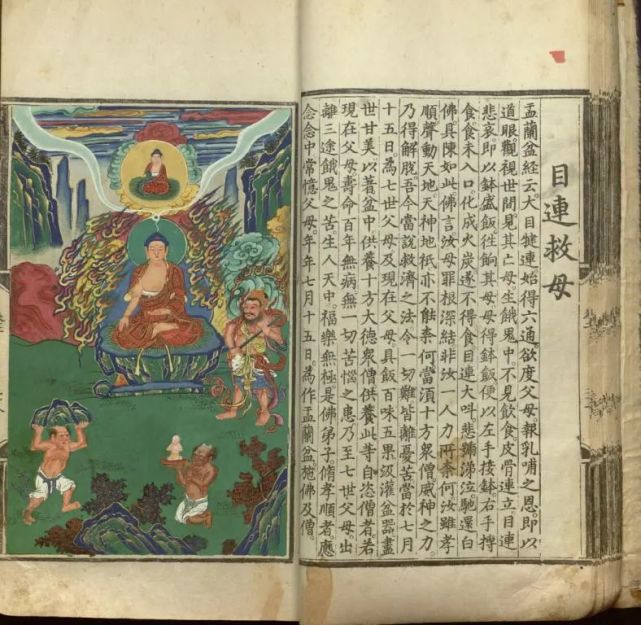 目連救母
盂蘭盆經云大目犍連始得六通。欲度父母報乳哺之恩。即以
道眼觀視世間。見其亡母生餓鬼中。不見飲食皮骨連立目連
悲哀。即以鉢盛飯徃餉其母母得鉢飯便以左手接鉢。右手摶
食。食未入口化成火炭遂不得食目連大呌悲號涕泣。馳還白
佛具陳如此佛言汝母罪根深結非汝一人力所奈何汝雖孝
順聲動天地天神地祇亦不能奈何當須十方衆僧威神之力。
乃得解脫吾今當說救濟之法令一切難皆離憂苦當於七月
十五日。為七世父母及現在父母具飯百味五果汲灌盆器盡
世甘美以著盆中供養十方大德衆僧供養此等自恣僧者。若
現在父母。壽命百年無病無一切苦惱之患乃至七世父母。出
離三途餓鬼之苦生人天中。福樂無極是佛弟子脩孝順者。應
念念中常憶父母。年年七月十五日。為作盂蘭盆施佛及僧。